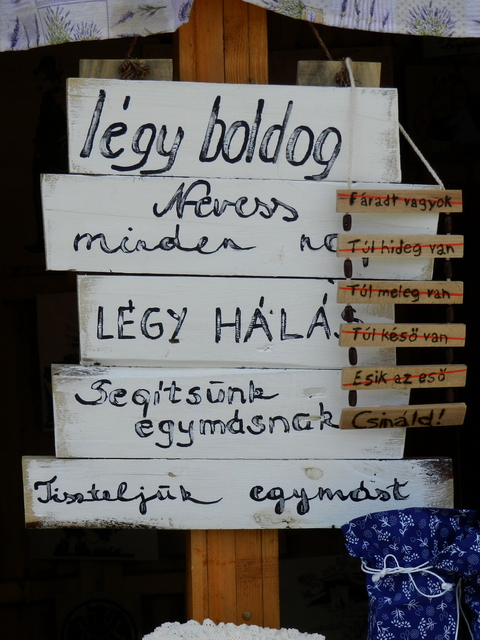 légy boldog
Nevess
minden
LÉGY HÁLÁS
Segítsünk
egymásnak
Tiszteljük egymást
Fáradt vagyok
Túl hideg van
Túl meleg van
Túl késő van
Esik az eső
Csináld!